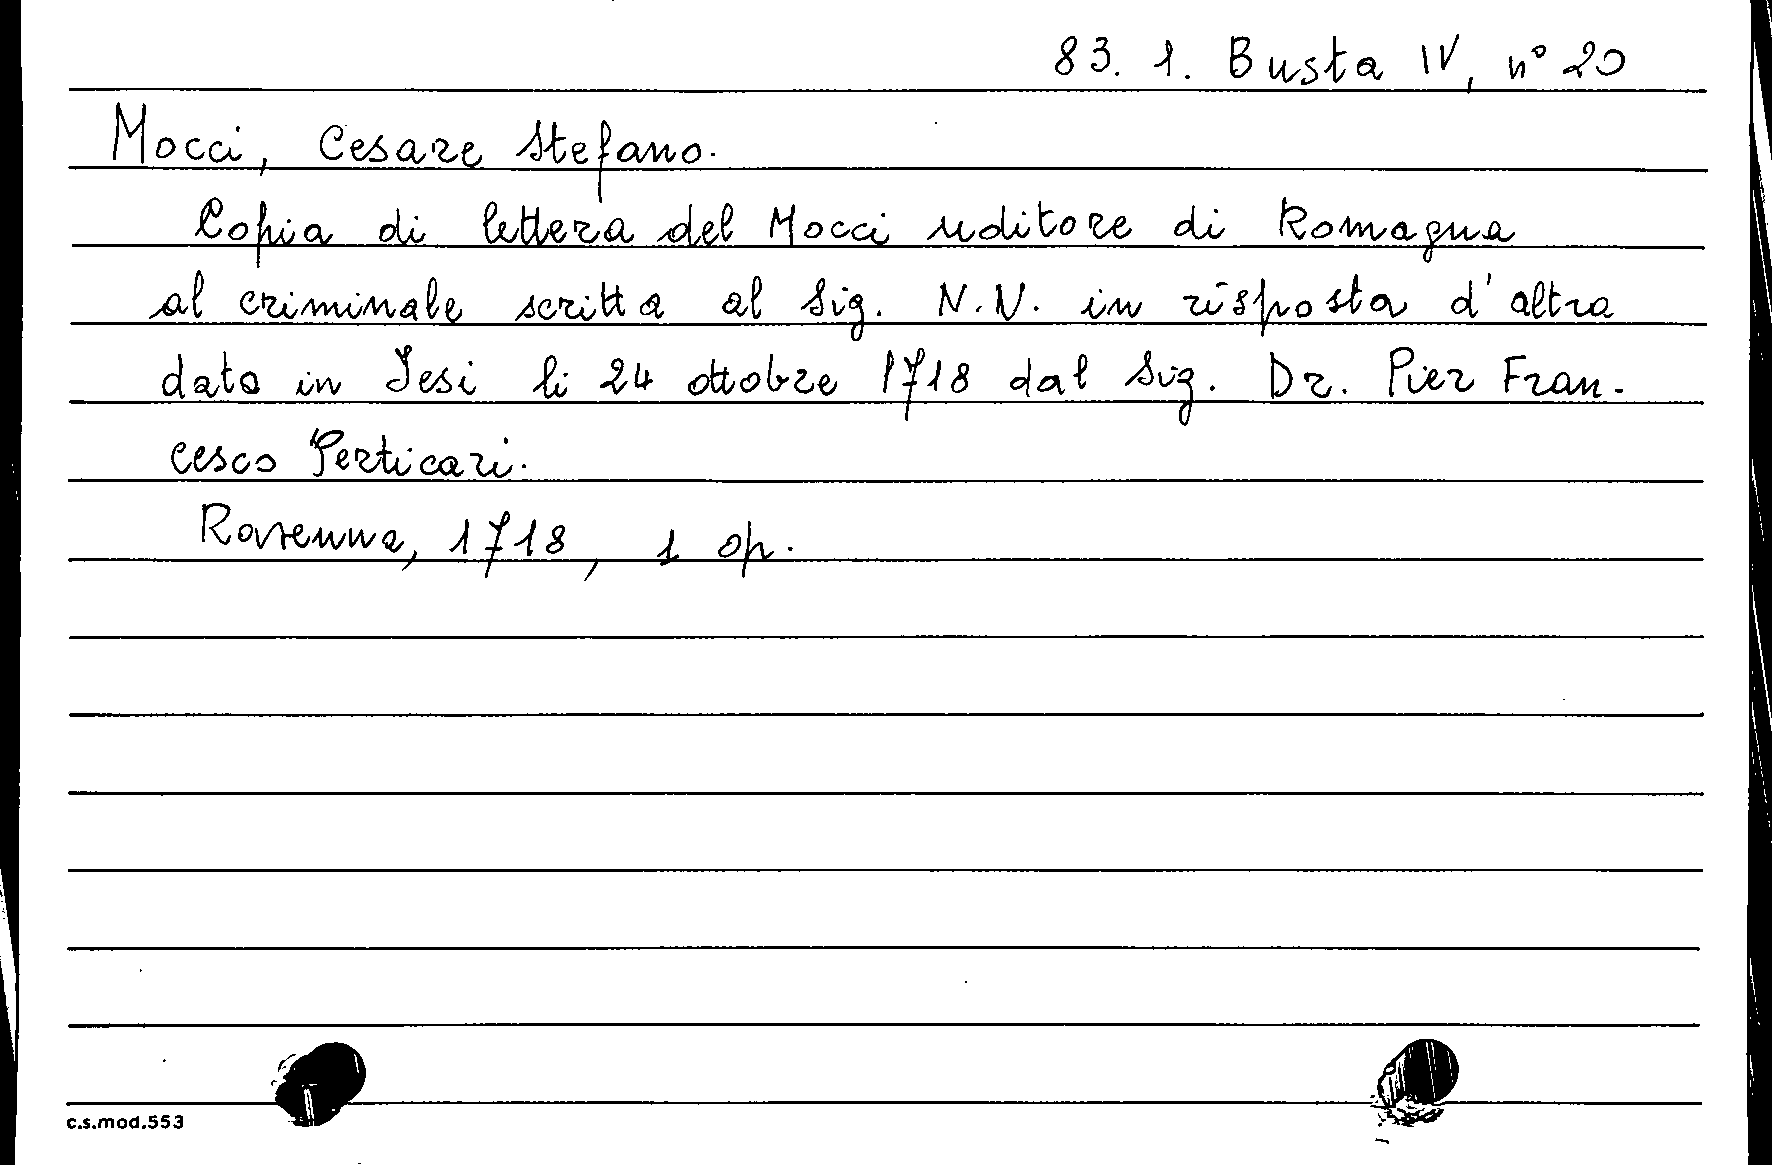 83. 1. Busta IV, n° 20
Mocci, Cesare Stefano.
Copia di lettera del Mocci uditore di Romagna
al criminale scritta al Sig. N.N. in risposta d'altra
data in Jesi li 24 ottobre 1718 dal Sig. Dr. Pier Fran-
cesco Perticari.
Ravenna, 1718, 1 op.
c.s.mod.553